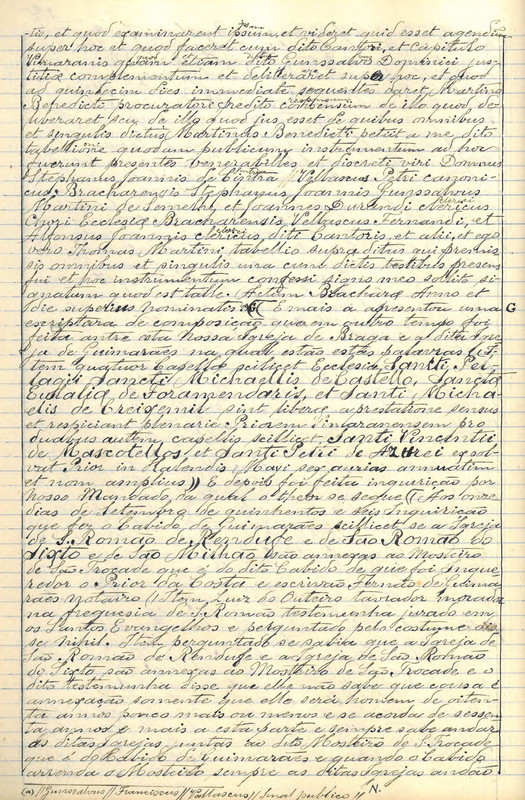 -tis, et quod examinarent ipsum, et videret quid esset agendum
super hoc et quod faceret cum dito Cantori, et Capitulo
Vimaranis quam etiam dito Gunssalvo Dominici jus-
titiæ complementum et deliberaret super hoc, et quod
ad quindecim dies immediate sequentes daret Martino
Benedicti procuratori predito de illo quod, de-
liberaret seu de illo quod jus esset de quibus omnibus
et singulis dictus Martinus Benedicti petiit a me, dito
tabellione quodam publicum instrumentum ad hoc
fuerunt presentes venerabilles et discreti viri Domnus
Stephanus Joannis de Valascus Petri canoni-
cus Bracharensis Stephanus Joannis Gunssalvus
Martini de et Joannes Durandi clericus
Chori Ecclesiæ Bracharensis Vellascus Fernandi, et
Alfonsus Joannis clericus, diti Cantoris, et alii, et ego
vero Thomas Martini tabellio supra ditus qui premis-
sis omnibus et singulis una cum dictis testibus presens
fui et hoc instrumentum confessi signo meo solito si-
gnatum quod est talle. Actum Bracharæ Anno et
die superius nominatis. E mais á apresentou uma G
escriptura de composição que em outro tempo foi
feita antre esta nossa Igreja de Braga e a dita Igre-
ja de Guimarães na qual estão estas palavras (I-
tem quatuor Casellæ scilicet Ecclesia Sancti Pel-
lagii Sancti Michaellis de Castello, Sancta
Eulalia de Foramendaris, et Santi Micha-
elis de Creixemil sint liberæ a prestatione sensus
et respiciant plenarie Priorem Vimaranensem pro
duabus autem capellis scilicet, Santi Vincentii
de Mascotellos, et Santi Petri de Azurei exsol-
vat Prior in Kalendis Maii sex aurias annuatim
et nom amplius)) E depois foi feita inquirição por
nosso Mandado, da qual o theor se segue (( Aos onze
dias de Setembro de quinhentos e seis Inquirição
que fez o Cabido, de Guimarães scillicet se a Igreja
de S. Romão de Rendufe e de São Romão do
Sixto e de São são annexas ao Mosteiro
de São Troçade que é do dito Cabido de que foi Inque-
redor o Prior da Costa e escrivão Fernão de Guima-
rães Notairo // Item Luiz do Outeiro lavrador morador
na freguesia de S. Romão testemunha jurado em
os Santos Evangelhos e perguntado pelo costume
nihil. Item perguntado se sabia que a Igreja de
São Romão de Rendufe e a Igreja de São Romão
do Sixto são annexas ao Mosteiro de São Trocade e o
dito testemunha disse que elle não sabe que cousa é
annexação somente que elle será homem de oiten-
ta annos pouco mais ou menos e se acorda de sessen-
ta annos e mais a esta parte e sempre sabe andar
as ditas Igrejas juntas ao dito Mosteiro de S. Troçade
que é do Cabido de Guimarães e quando o Cabido
arrenda o Mosteiro sempre as ditas Igrejas andão
(a) // Gunsalvus // Franciscus // Vallascus // Sinal publico // N.